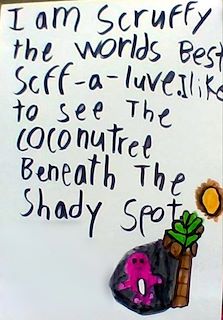 I am Scruffy
the worlds Best
Scff-a-luve.I like
to see The
coconutree
Beneath The
Shady Spot